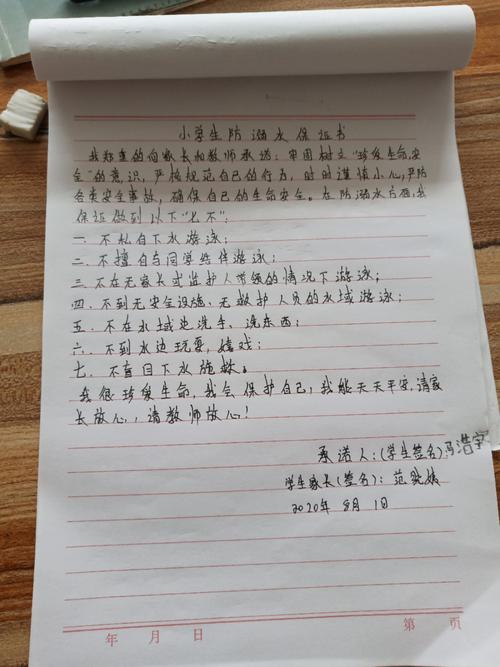 小学生防溺水保证书
我郑重的向家长和教师承诺：牢固树立"珍爱生命,安
全"的意识，严格规范自己的行为，时时谨慎小心,严防
各类安全事故，确保自己的生命安全。在防溺水方面,我
保证做到以下"七不"：
一．不私自下水游泳；
二．不擅自与同学结伴游泳；
三．不在无家长或监护人带领的情况下游泳；
四．不到无安全设施、无救护人员的水域游泳；
五．不在水域边洗手、洗东西；
六．不到水边玩耍，嬉戏；
七．不盲目下水施救。
我很珍爱生命，我会保护自己，我能天天平安,请家
长放心，请教师放心！
承诺人：(学生签名)冯浩宇
学生家长(签名)：范
2020年8月1日
年 月 日 第 页